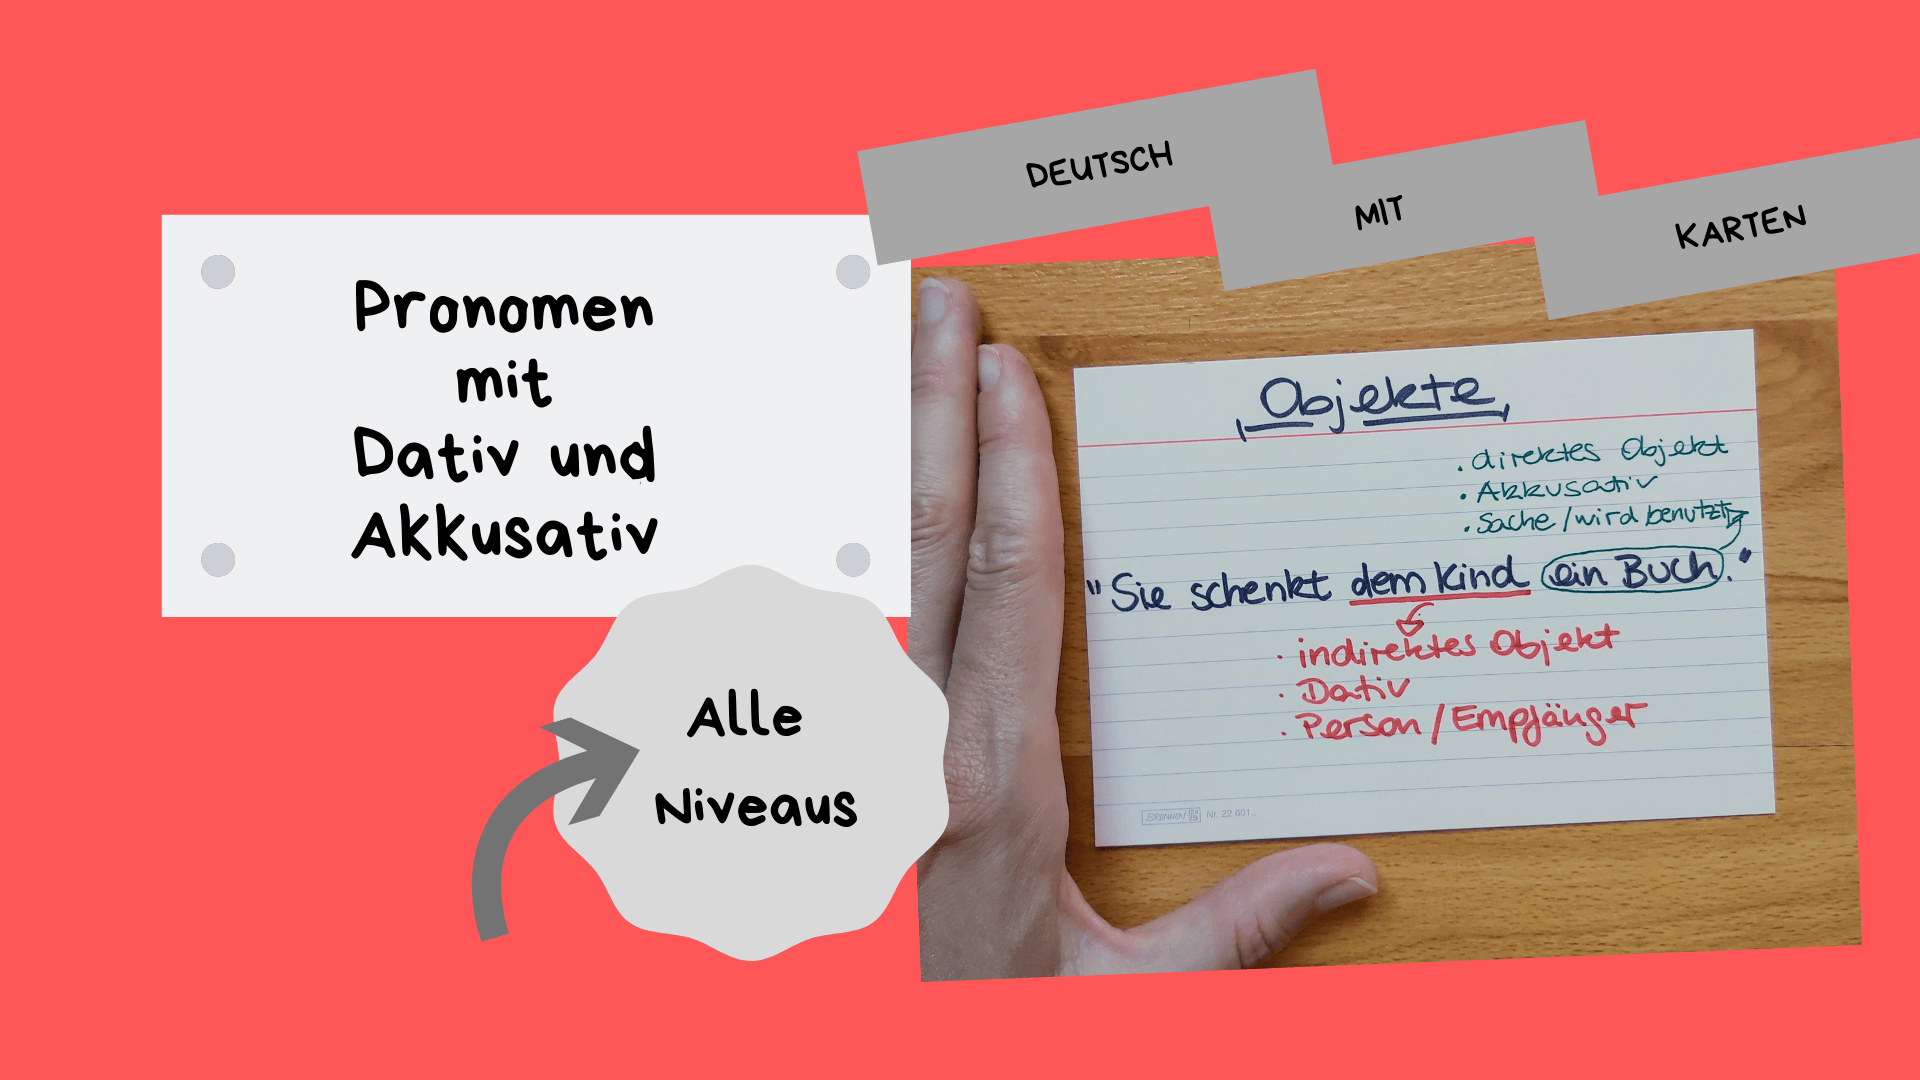 DEUTSCH
MIT
KARTEN
Pronomen
mit
Dativ und
Akkusativ
Alle
Niveaus
Objekte
. direktes Objekt
. Akkusativ
. Sache/wird benutzt
"Sie schenkt dem Kind ein Buch."
. indirektes Objekt
. Dativ
. Person/Empfänger
BRUNNEN Nr. 22 601..